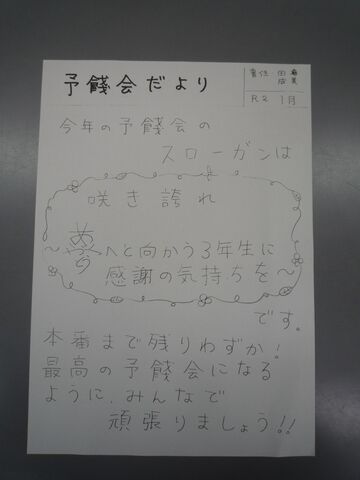 予餞会だより
責任
R2 1月
今年の予餞会の
スローガンは
咲き誇れ
夢へと向かう3年生に
〜感謝の気持ちを〜
です。
本番まで残りわずか!
最高の予餞会になる
ように、みんなで
頑張りましょう!!